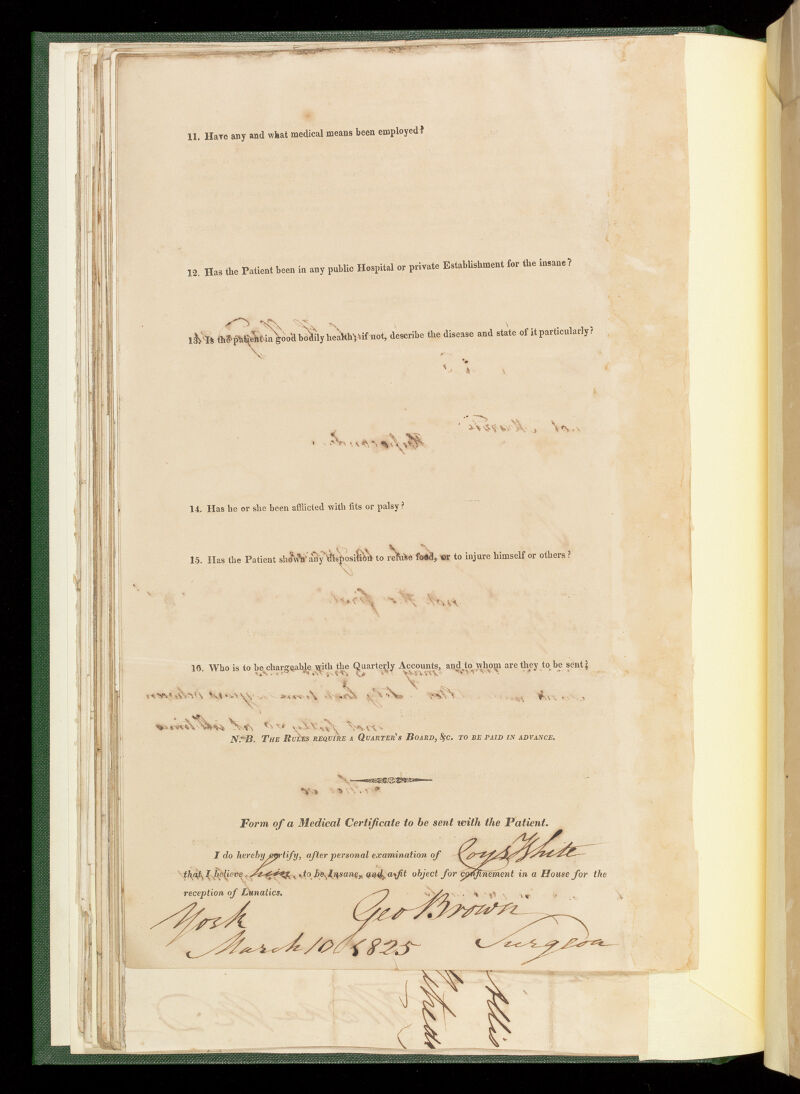 11. Have any and what medical means been employed?
12. Has the Patient been in any public Hospital or private Establishment for the insane?
13. Is the patient in good bodily health; if not, describe the disease and state of it particularly?
14. Has he or she been afflicted with fits or palsy?
15. Has the Patient shown any disposition to refuse food, or to injure himself or others?
16. Who is to be chargeable with the Quarterly Accounts, and to whom are they to be sent?
N. B. THE RULES REQUIRE A QUARTER'S BOARD, &c. TO BE PAID IN ADVANCE.
Form of a Medical Certificate to be sent with the Patient.
I do hereby certify, after personal examination of White
that I believe him to be Insane, and a fit object for confinement in a House for the
reception of Lunatics.
York Geo Brown
March 10 1825 Surgeon